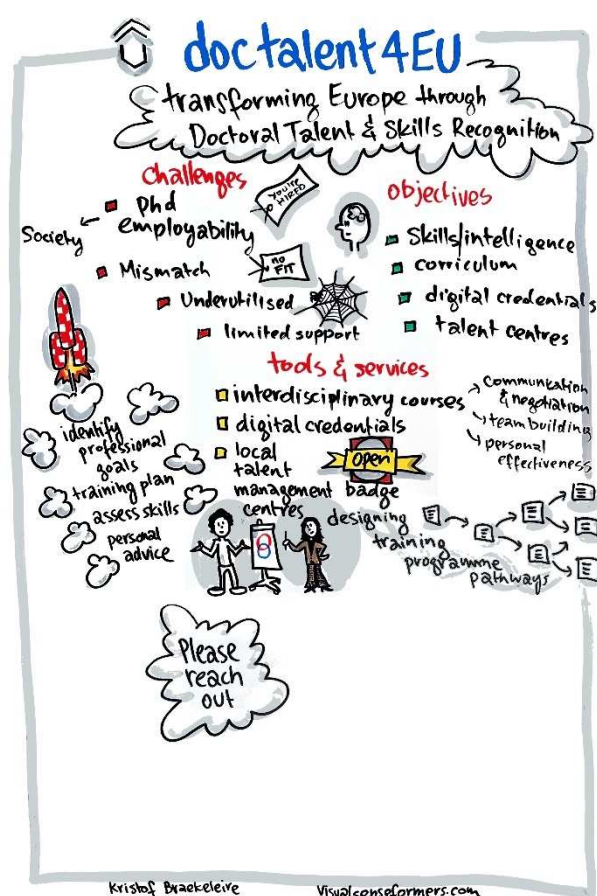 doctalent4EU
transforming Europe through
Doctoral Talent & Skills Recognition
challenges
Phd
employability
Society
Mismatch
Underutilised
limited support
You're
HIRED
no
FIT
objectives
Skills/intelligence
corriculum
digital credentials
talent centres
tools & services
interdisciplinary courses
communication
& negotiation
team building
personal
effectiveness
digital credentials
local
talent
management
centres
open
badge
identify
professional
goals
training plan
assess skills
personal
advice
designing
training
programme
pathways
Please
reach
out
Kristof Braekeleire
Visualconseformers.com